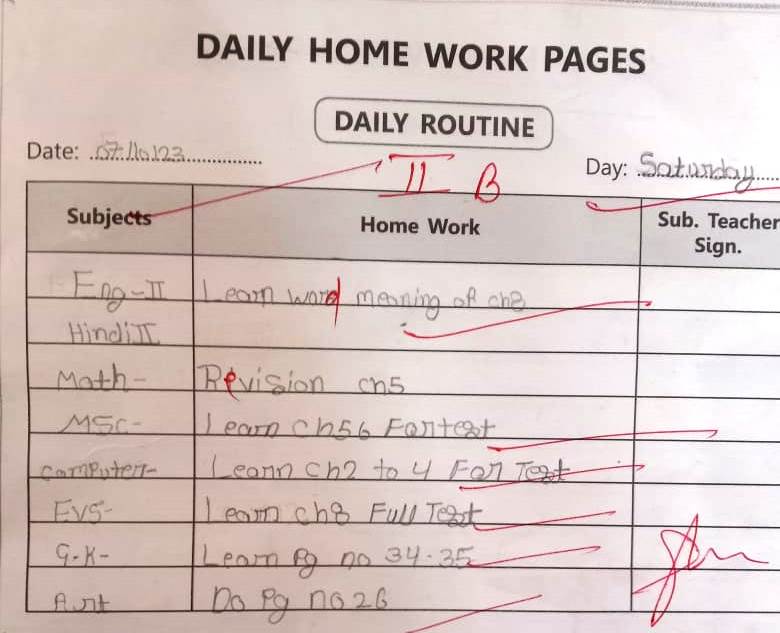 DAILY HOME WORK PAGES
DAILY ROUTINE
Date: 07/10/23 Day: Saturday
II B
Subjects Home Work Sub. Teacher Sign.
Eng-II Learn word meaning of ch8
Hindi II
Math- Revision ch5
MSC- Learn Ch56 For test
Computer- Learn Ch2 to 4 For Test
EVS- Learn ch8 Full Test
G.K- Learn Pg no 34.35
Art Do Pg no 26